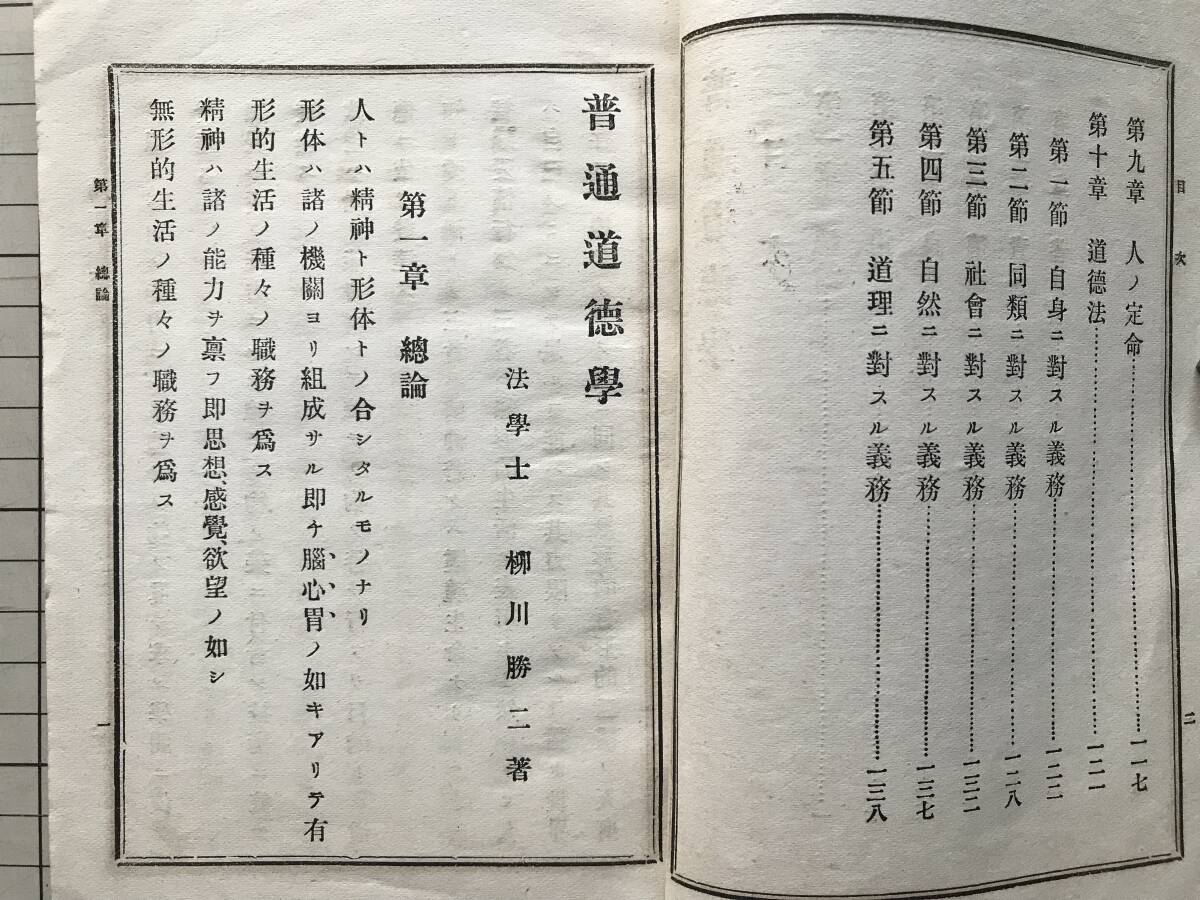 目次
二
第九章 人ノ定命……一一七
第十章 道德法……一二一
第一節 自身ニ對スル義務……一二二
第二節 同類ニ對スル義務……一二八
第三節 社會ニ對スル義務……一三二
第四節 自然ニ對スル義務……一三七
第五節 道理ニ對スル義務……一三八
普通道德學
法學士 柳川勝二著
第一章 總論
人トハ精神ト形体トノ合シタルモノナリ
形体ハ諸ノ機關ヨリ組成サル即チ腦、心、胃、ノ如キアリテ有
形的生活ノ種々ノ職務ヲ爲ス
精神ハ諸ノ能力ヲ禀フ即思想、感覺、欲望ノ如シ
無形的生活ノ種々ノ職務ヲ爲ス
第一章 總論
一